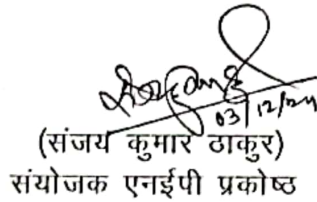 03/12/24
(संजय कुमार ठाकुर)
संयोजक एनईपी प्रकोष्ठ